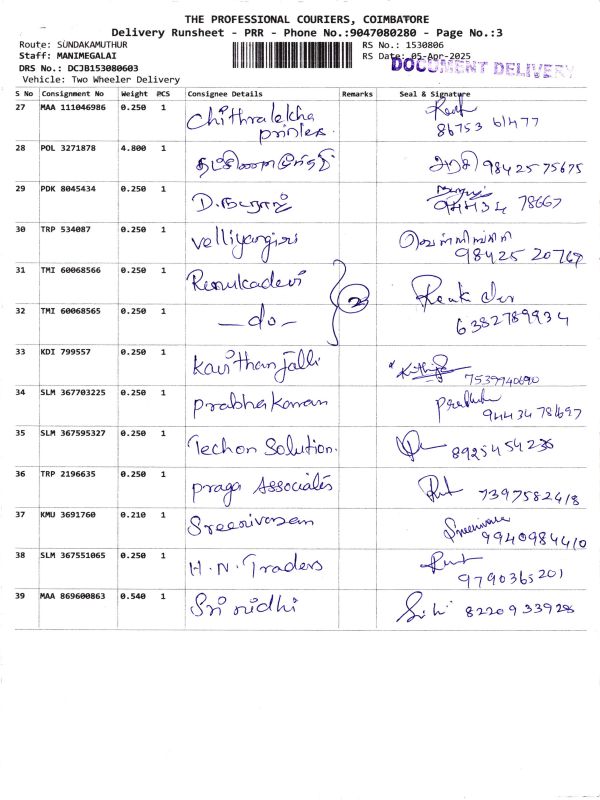 THE PROFESSIONAL COURIERS, COIMBATORE
Delivery Runsheet - PRR - Phone No.:9047080280 - Page No.:3
Route: SUNDAKAMUTHUR
RS No.: 1530806
Staff: MANIMEGALAI
RS Date: 05-Apr-2025
DOCUMENT DELIVERY
DRS No.: DCJB153080603
Vehicle: Two Wheeler Delivery
S No Consignment No Weight PCS Consignee Details Remarks Seal & Signature
27 MAA 111046986 0.250 1 Chithralekha printers
86753 61477
28 POL 3271878 4.800 1 98425 75675
29 PDK 8045434 0.250 1 94434 78667
30 TRP 534087 0.250 1 Velliyangiri
98425 20769
31 TMI 60068566 0.250 1 Renukadevi 2
32 TMI 60068565 0.250 1 -do-
6382789934
33 KDI 799557 0.250 1 7539940690
34 SLM 367703225 0.250 1 Prabhakaran
94434 781697
35 SLM 367595327 0.250 1 Techon Solution. 8925454236
36 TRP 2196635 0.250 1 Praga Associates 7397582418
37 KMU 3691760 0.210 1 Sreenivasan
9940984410
38 SLM 367551065 0.250 1 H.N. Traders
9790365201
39 MAA 869600863 0.540 1 Sri nidhi 8220933928